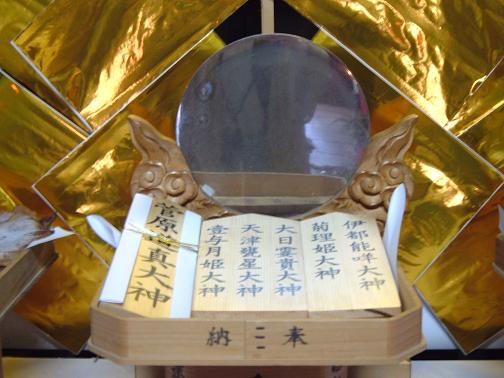 伊都能咩大神
菊理姫大神
大日孁貴大神
天津甕星大神
壹与月姫大神
菅原道真大神
奉納